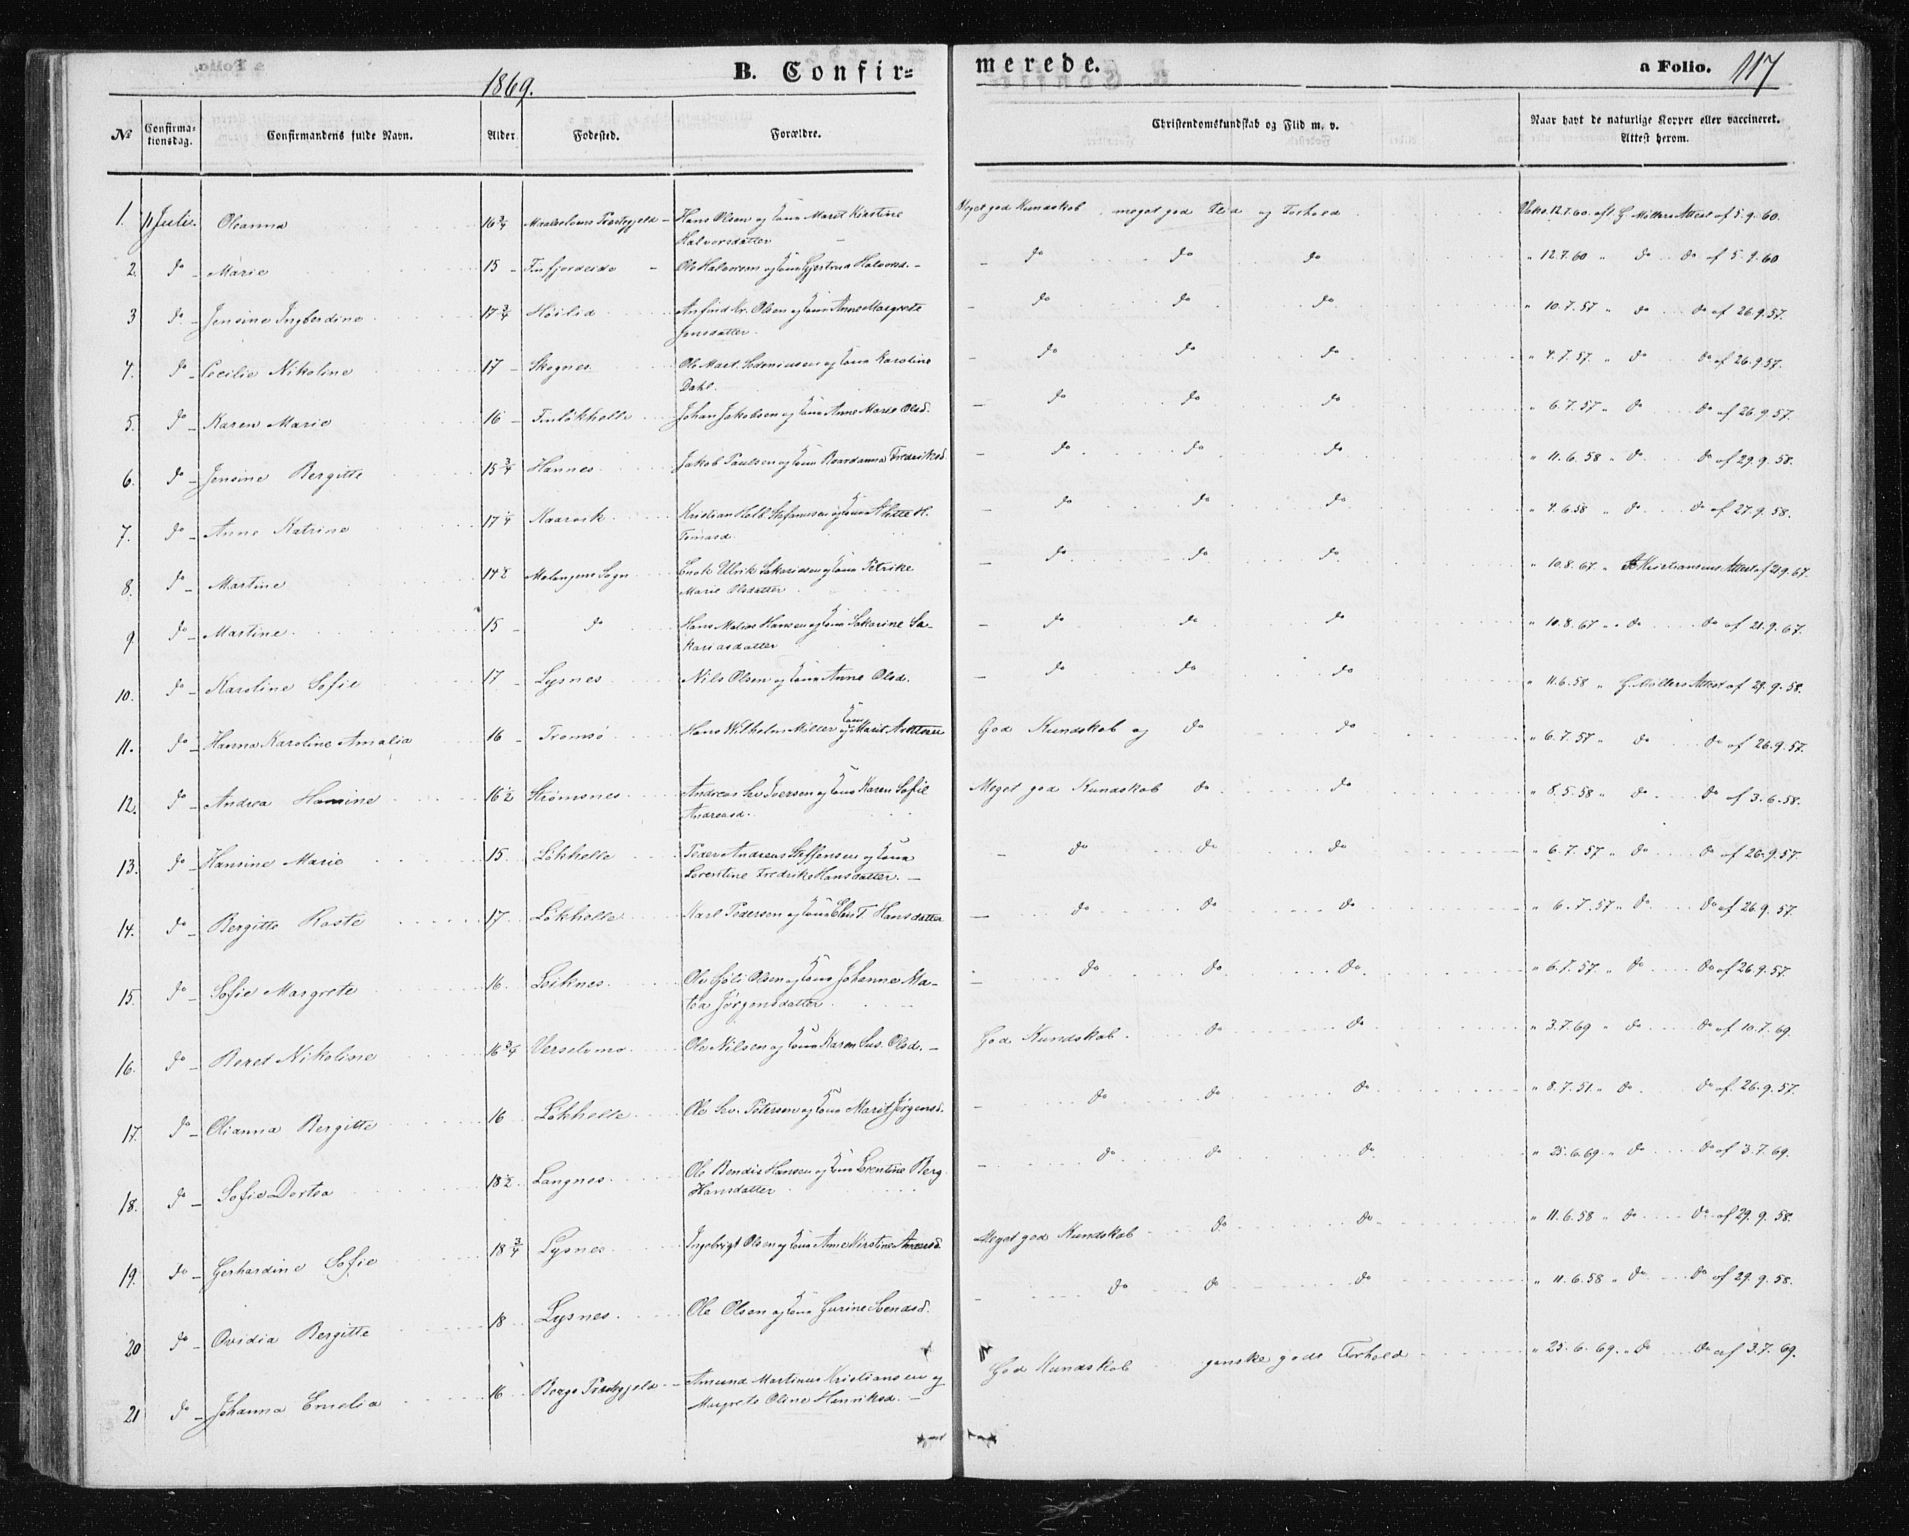 B. Confir= merede. a Folio. 117
1869.
№ Confirma-tionsdag. Confirmandens fulde Navn. Alder. Fodested. Forældre. Christendomskundskab og Flid m. v. Naar havt de naturlige Kopper eller vaccineret. Attest herom.
1. 11 Julii. Oleanna 16 3/4 Maalselvens Præstegjeld - Hans Olsen og Kone Maret Kirstine Meget god Kundskab. meget god Flid og Forhold Vakc. 12.7.60 aft. G Møllers Attest af 5.9.60.
Halvorsdatter
2. do - Marie 15 - Finfjordeide - Ole Halvorsen og Kone Gjertrud Halvorsd. - - do do do " 12.7.60 " do do af 5.9.60
3 do - Jensine Ingberdine 17 3/4 Høilid Arfind Kr. Olsen og Kone Anne Margrete - do do do " 10.7.57 " do do af 26.9.57.
Jensdatter.
4. do - Cecilie Nikoline 17 - Skognes Ole Mart. Kone Karoline - do do do " 4.7.57. " do do af 26.9.57.
Dahl.
5. do - Karen Marie 16 - Finløkhelle Johan Jakobsen og Kone Anne Marie Olsd. - do do do " 6.7.57 " do do af 26.9.57.
6. do - Jensine Bergitte 15 3/4 Hannes Jakob Paulsen og Kone Baardanna Fredriksd. - do do do " 11.6.58 " do do af 29.9.58.
7. do - Anne Katrine 17 1/4 Maarvik Kristian Holb. Stefansen og Kone Alette H. - do do do " 4.6.58 " do do af 27.9.58.
Tomasd.
8. do - Martine 14 1/2 Malangens Sogn Enok Ulrik Sakariassen og Kone Petrike - do do do " 10.8.67 " Kristiansens Attest af 21.9.67.
Marie Olsdatter
9. do - Martine. 15 - do Hans Matias Hansen og Kone Sakarine Sa- - do do do " 10.8.67 " do do af 21.9.67.
kariasdatter
10. do - Karoline Sofie 17 - Lysnes Nils Olsen og Kone Anne Olsd. - do do do " 11.6.58 " G. Møllers Attest af 29.9.58.
11. do - Hanna Karoline Amalia 16 - Tromsø Hans Wilhelm Miller og Kone Marit God Kundskab og do do " 6.7.57 " do do af 26.9.57.
12. do - Andrea Hansine 16 1/2 Strømsnes Andreas Iversen og Kone Karen Sofie Meget god Kundskab do do " 8.5.58 " do do af 3.6.58.
Andreasd.
13. do - Hansine Marie 15 Løkhelle Peder Andreas Steffensen og Kone - do do do " 6.7.57 " do do af 26.9.57.
Lorentine Fredrikke Hansdatter. -
14. do - Bergitte Roste 17 Løkhelle Karl Pedersen og Kone Hansdatter - do do do " 6.7.57 " do do af 26.9.57.
15. do - Sofie Margrete 16. Leiknes Ole Olsen og Kone Johanna Ma- - do do do " 6.7.57 " do do af 26.9.57.
tea Jørgensdatter
16. do - Beret Nikoline 16 3/4 Ole Nilsen og Kone Karen Sus. Olsd. - God Kundskab. do do " 3.7.69 " do do af 10.7.69.
17. do - Olianna Bergitte 16 Løkhelle Ole Petersen og Kone Marit Jørgensd. - do do do " 8.7.51. " do do af 26.9.57.
18. do - Sofie Dortea 18 1/2 Langnes Ole Bendix Hansen og Kone Lorentine Berg. - do do do " 25.6.69 " do do af 3.7.69.
Hansdatter
19. do - Gerhardine Sofie 18 3/4 Lysnes Ingebrigt Olsen og Kone Anne Kirstine Meget god Kundskab do do " 11.6.58 " do do af 29.9.58.
20 do - Ovidia Bergitte 18 Lysnes. Ole Olsen og Kone Gurine Svendsd. - do do do " 11.6.58 " do do af 29.9.58.
21 do - Johanna Emelia 16 Bergs Præstegjeld - Amund Martinus Kristiansen og God Kundskab ganske gode Forhold " 25.6.69. " do do af 3.7.69.
Margrete Oline Henriksd. -